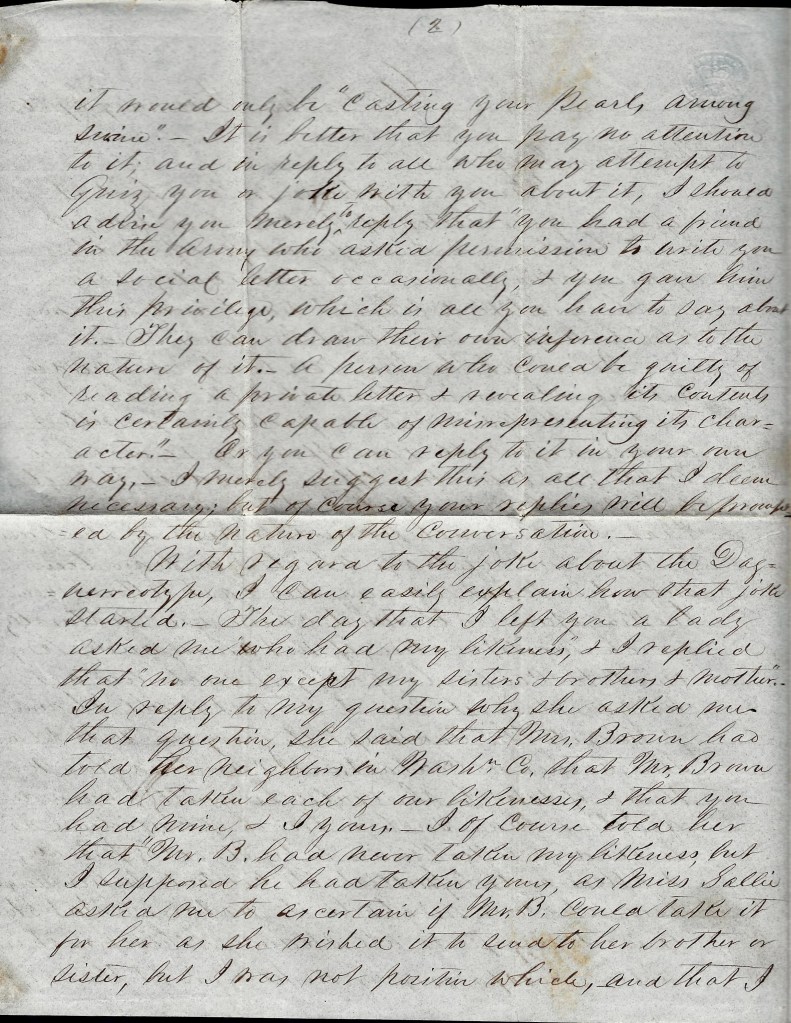 (2)
it would only be "casting your Pearls among
swine". – It is better that you pay no attention
to it; and in reply to all who may attempt to
Quiz you or joke with you about it, I should
advise you merely to reply that "you had a friend
in the Army who asked permission to write you
a social letter occasionally, & you gave him
this privilige, which is all you have to say about
it. – They can draw their own inference as to the
nature of it. – A person who could be guilty of
reading a private letter & revealing its contents
is certainly capable of misrepresenting its char=
acter." – Or you can reply to it in your own
way, – I merely suggest this as all that I deem
necessary; but of course your replies will be prompt
=ed by the nature of the conversation. –
With regard to the joke about the Dag=
=uerreotype, I can easily explain how that joke
started. – The day that I left you a lady
asked me "who had my likeness", & I replied
that "no one except my sisters & brothers & mother". –
In reply to my question why she asked me
that question, she said that Mrs. Brown had
told her neighbors in Washn Co. that Mr. Brown
had taken each of our likenesses, & that you
had mine, & I yours. – I of course told her
that "Mr. B. had never taken my likeness, but
I supposed he had taken yours, as Miss Sallie
asked me to ascertain if Mr. B. could take it
for her as she wished it to send to her brother or
sister, but I was not positive which, and that I